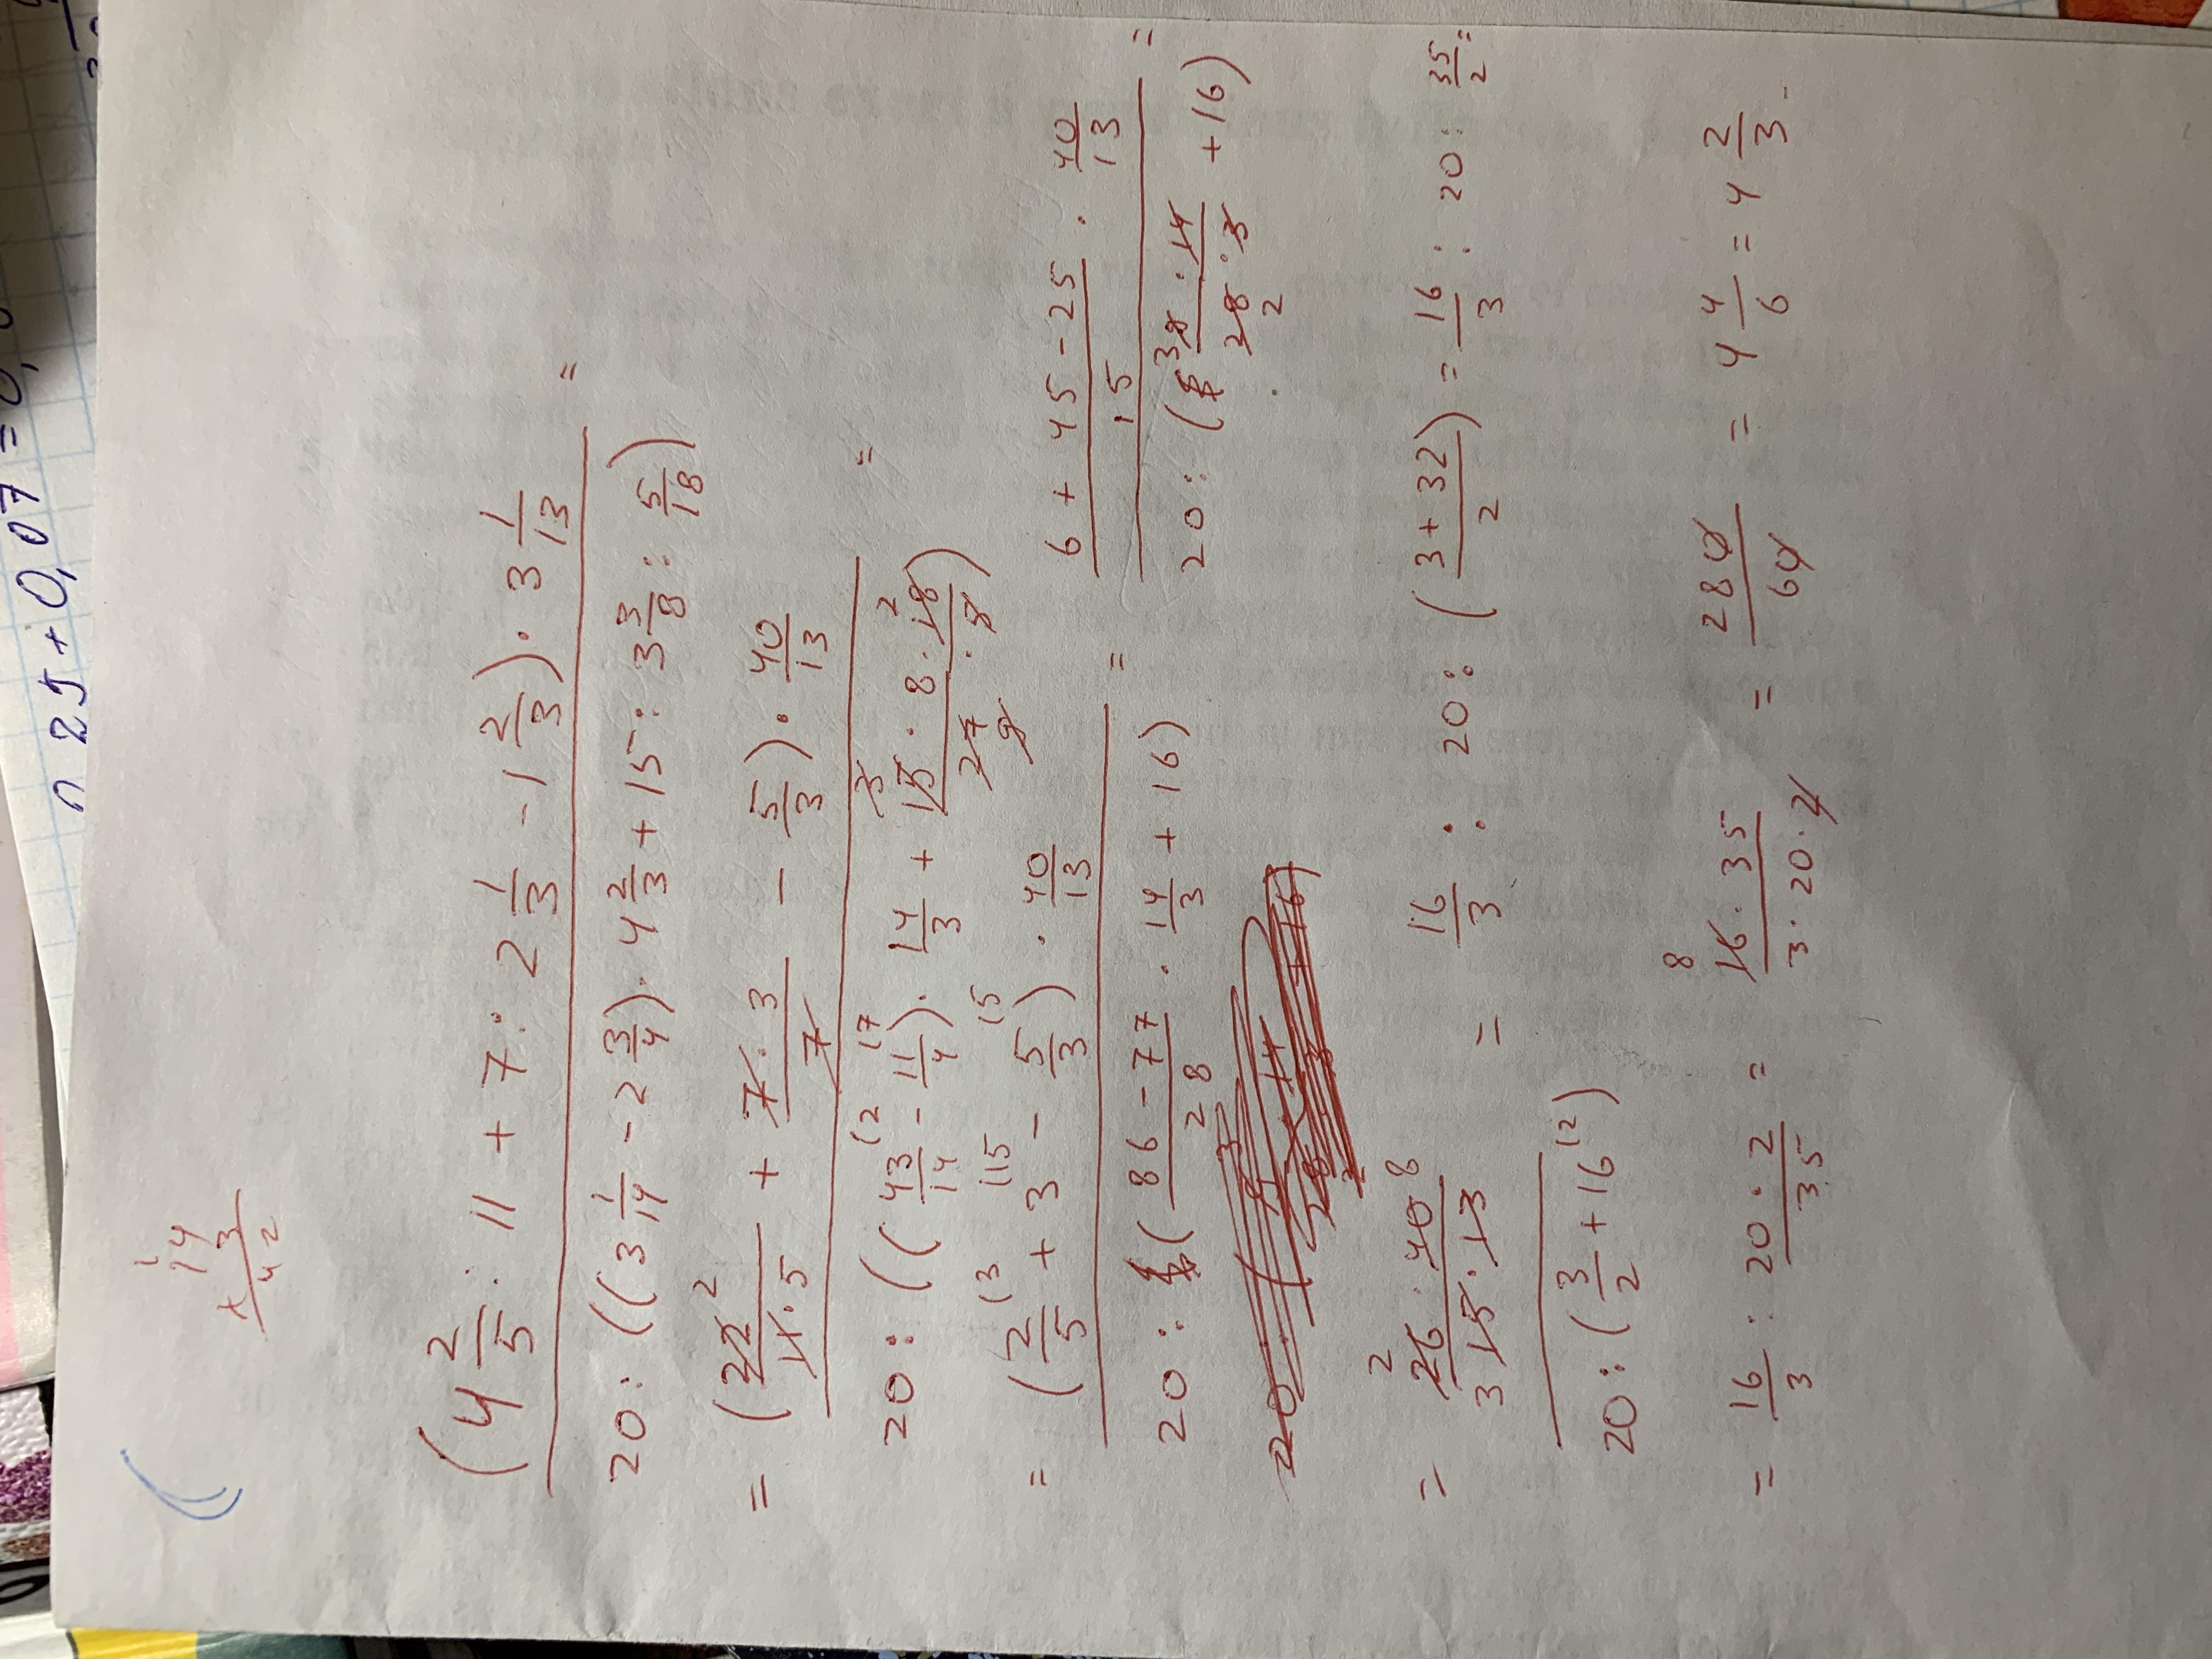 n 25 + 0,07 = 0,
1
14
× 3
42
(4 2/5 : 11 + 7 : 2 1/3 - 1 2/3) · 3 1/13 =
20 : ((3 1/14 - 2 3/4) · 4 2/3 + 15 : 3 3/8 : 5/18)
= (22 2/11 · 5 + 7 · 3/7 - 5/3) · 40/13 =
20 : ((43/14 (2 - 11/4 (7) · 14/3 + 15 3 · 8 · 18 2/27 9 · 5)
= (2/5 (3 + 3 (15 - 5/3 (5) · 40/13 =
20 : (86 - 77/28 · 14/3 + 16)
6 + 45 - 25/15 · 40/13 =
20 : (9 3 · 14/28 2 · 3 + 16)
20 : (
= 26 2 · 40 8/3 15 · 13 = 16/3 : 20 : (3 + 32/2) = 16/3 : 20 : 35/2 =
20 : (3/2 + 16 (2)
= 16/3 : 20 · 2/35 = 16 8 · 35/3 · 20 · 2 = 280/60 = 4 4/6 = 4 2/3.